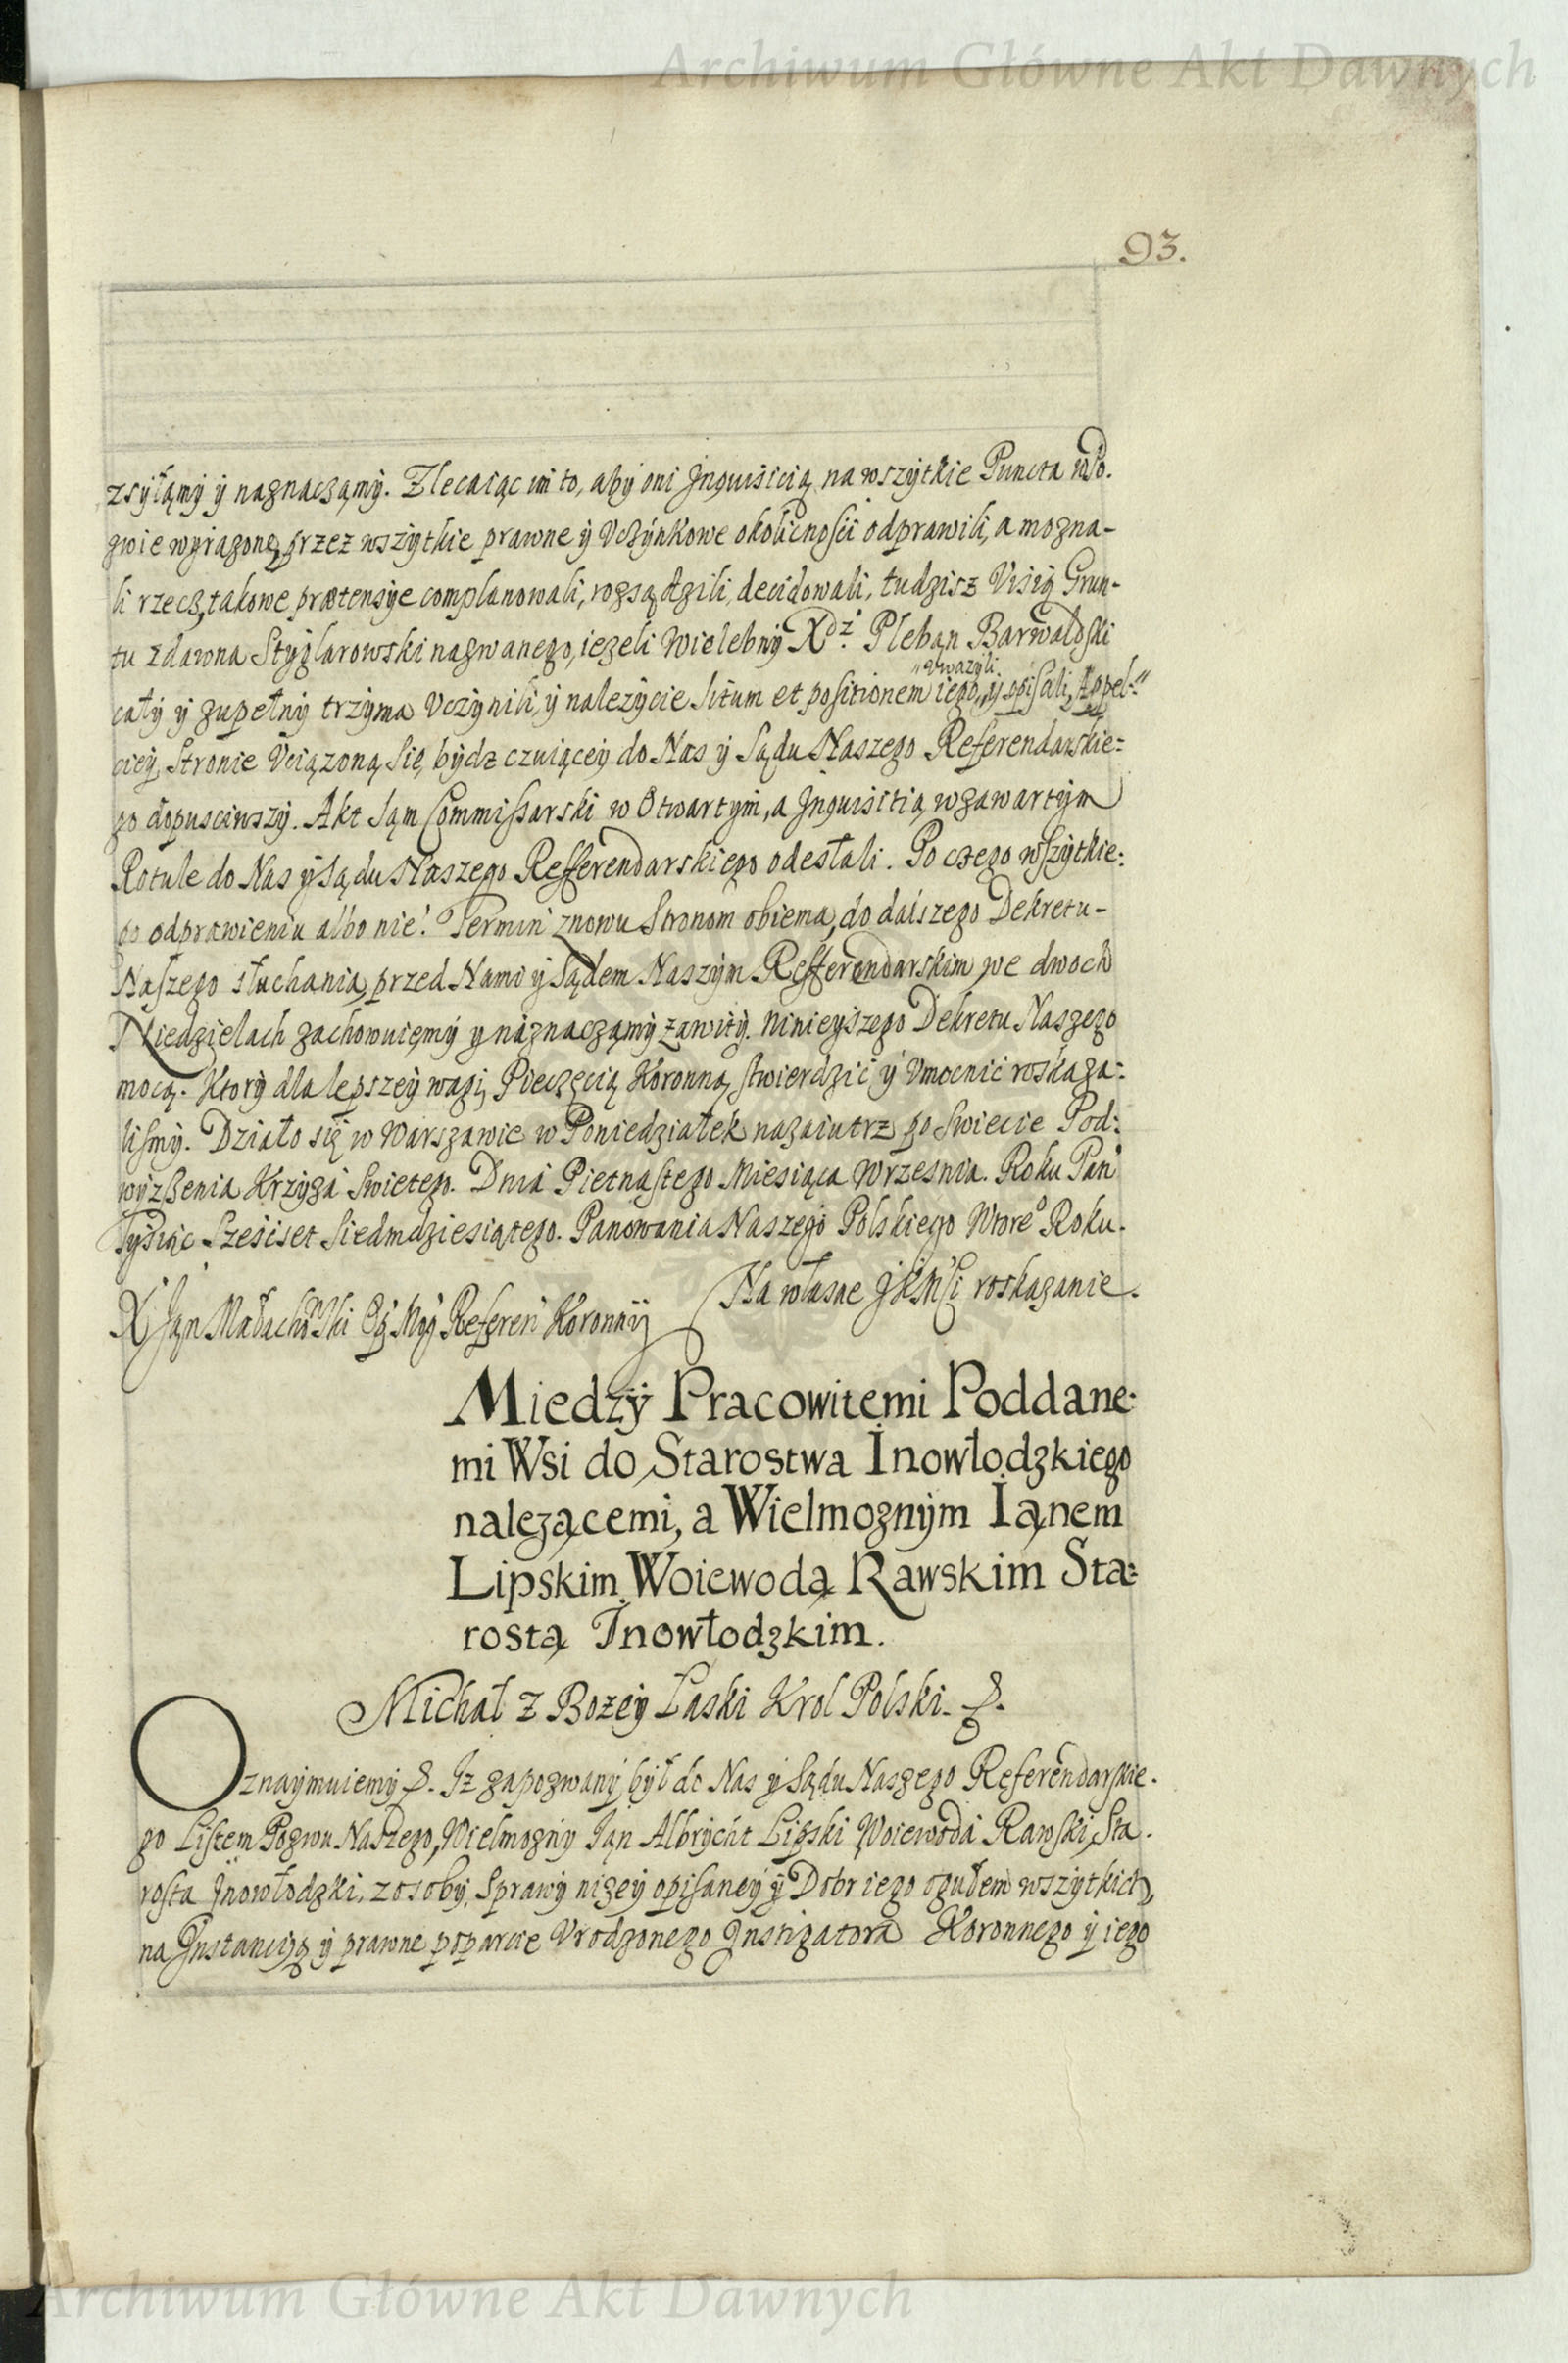 Archiwum Główne Akt Dawnych
93.
zsyłąmy y naznacząmy. Zlecaiąc im to, aby oni Inquisicią na wszytkie Puncta w Po-
zwie wyrażone, przez wszytkie prawne y Uczynkowe okolicznosci odprawili, a mozna-
li rzecz, takowe prætensye complanowali, rozsądzili, decidowali, tudzisz Visią Grun-
tu zdawna Styglarowski nazwanego, iezeli Wielebny Xdz. Pleban Barwałdski
cały y zupełny trzyma Uczynili, y nalezycie situm et positionem iego, "Uwazyli y opisali, Appel-
ciey Stronie Uciązoną się bydz czuiącey do Nas y Sądu Naszego Referendarskie=
go dopusciwszy. Akt Sąm Commissarski w Otwartym, a Inquisitią w zawartym
Rotule do Nas y Sądu Naszego Refferendarskiego odesłali. Po czego wszytkie:
go odprawieniu albo nie! Termin znowu Stronom obiema, do dalszego Dekretu-
Naszego słuchania, przed Nami y Sądem Naszym Refferendarskim, we dwoch
Niedzielach zachowuięmy y naznacząmy zawity. Ninieyszego Dekretu Naszego
mocą. Ktory dla lepszey wagi, Pieczęcią Koronną stwierdzić y Umocnic roskaza:
lismy. Działo się w Warszawie w Poniedziałek nazaiutrz po Swiecie Pod:
wyzszenia Krzyza Swietego. Dnia Pietnastego Miesiąca Wrzesnia. Roku Pan
Tysiąc Szesciset Siedmdziesiątego. Panowania Naszego Polskiego Wtoreo Roku.
Na własne JKMsci roskazanie.
X Ján Małachowski Referen Koronny
Miedzy Pracowitemi Poddane:
mi Wsi do Starostwa Inowłodzkiego
nalezącemi, a Wielmoznym Iąnem
Lipskim Woiewodą Rawskim Sta:
rostą Inowłodzkim.
Michał z Bozey Laski Krol Polski. &.
Oznaymuiemy &. Iz zapozwany był do Nas y Sądu Naszego Referendarskie.
go Listem Pozwu Naszego, Wielmozny Ján Albrycht Lipski Woiewoda Rawski, Sta.
rosta Inowłodzki, z osoby, Sprawy nizey opisaney y Dobr iego ogułem wszytkich,
na Instancyą y prawne poparcie Urodzonego Instigatora Koronnego y iego
Archiwum Główne Akt Dawnych